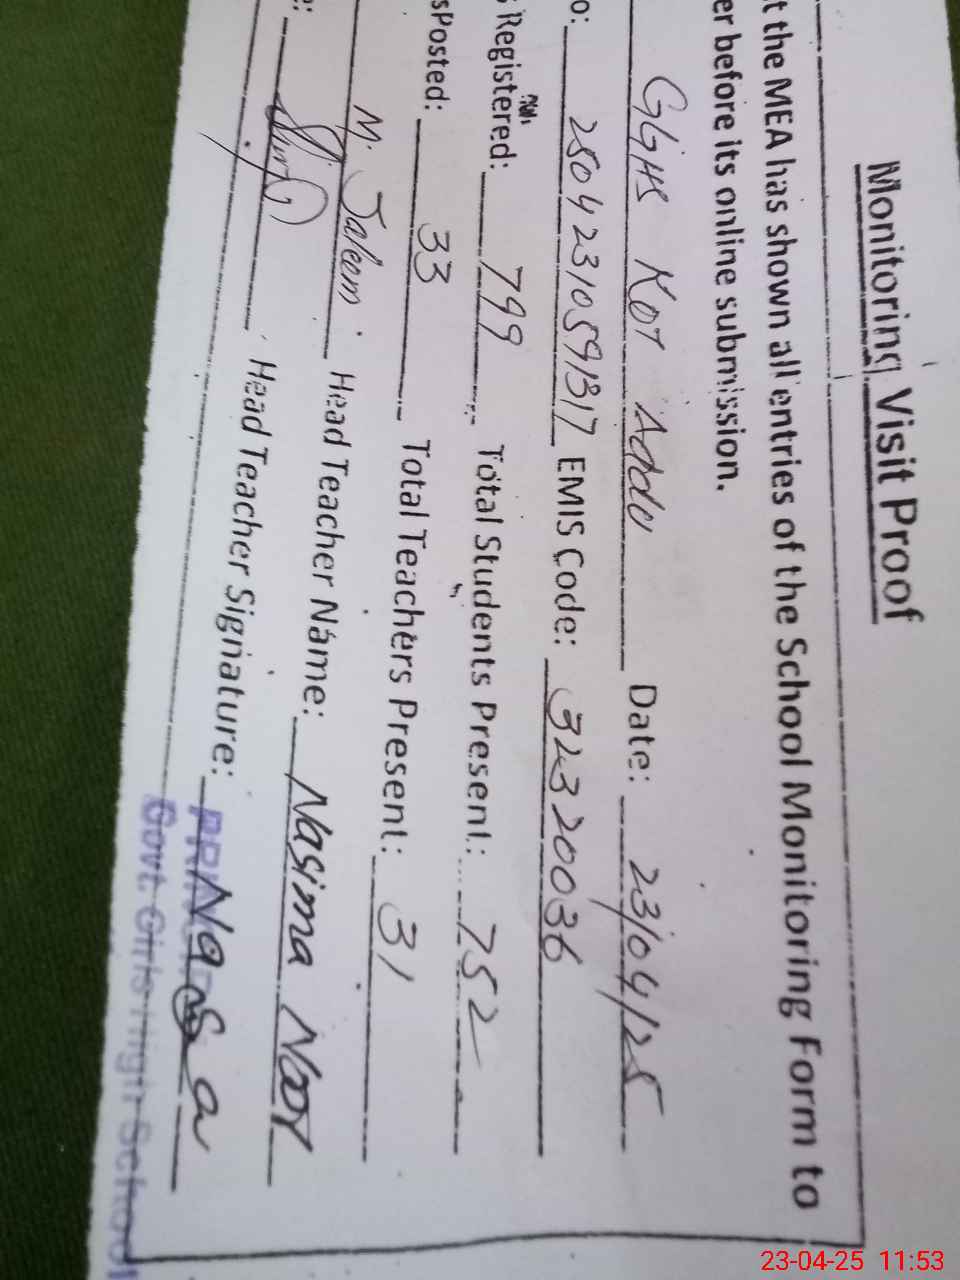 Monitoring Visit Proof
t the MEA has shown all entries of the School Monitoring Form to
er before its online submission.
GGHS Kot Addu Date: 23/04/25
o: 25042310591317 EMIS Code: 32320036
Registered: 799 Total Students Present: 752
sPosted: 33 Total Teachers Present: 31
M. Saleem Head Teacher Name: Nasima Noor
Head Teacher Signature:
Govt. Girls High School
23-04-25 11:53